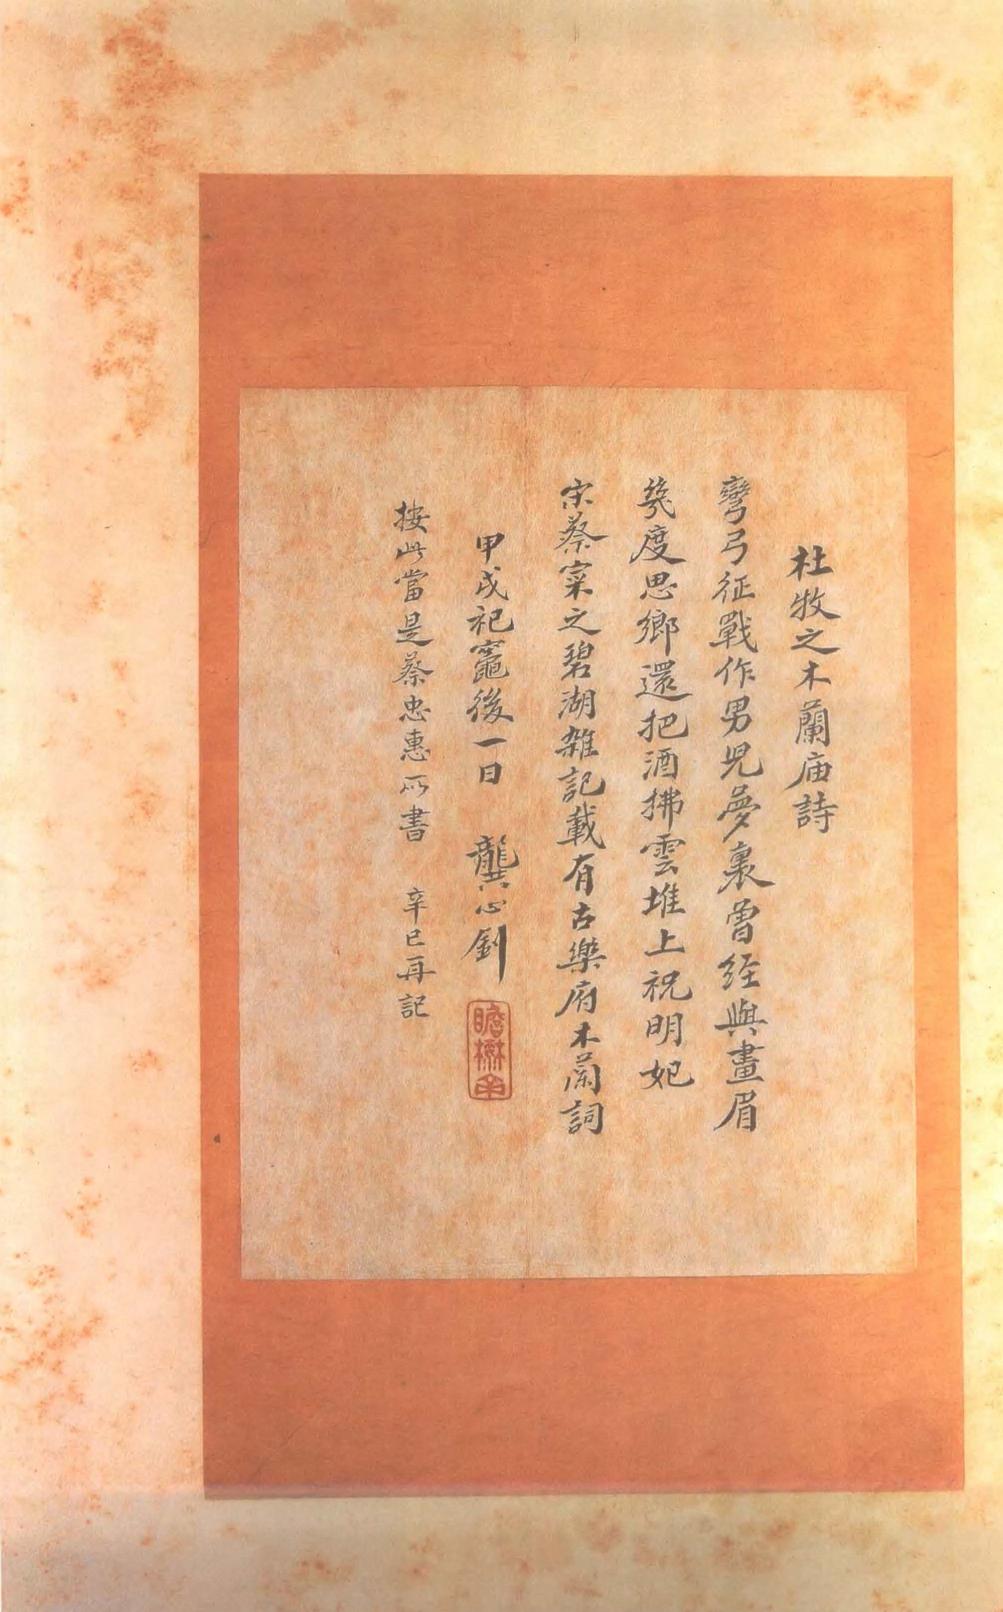 杜牧之木蘭庙詩
彎弓征戰作男兒夢裏曾經與畫眉
幾度思鄉還把酒拂雲堆上祝明妃
宋蔡寀之碧湖雜記載有古樂府木蘭詞
甲戌祀竈後一日 龔心釗
瞻麓
按此當是蔡忠惠所書 辛巳再記